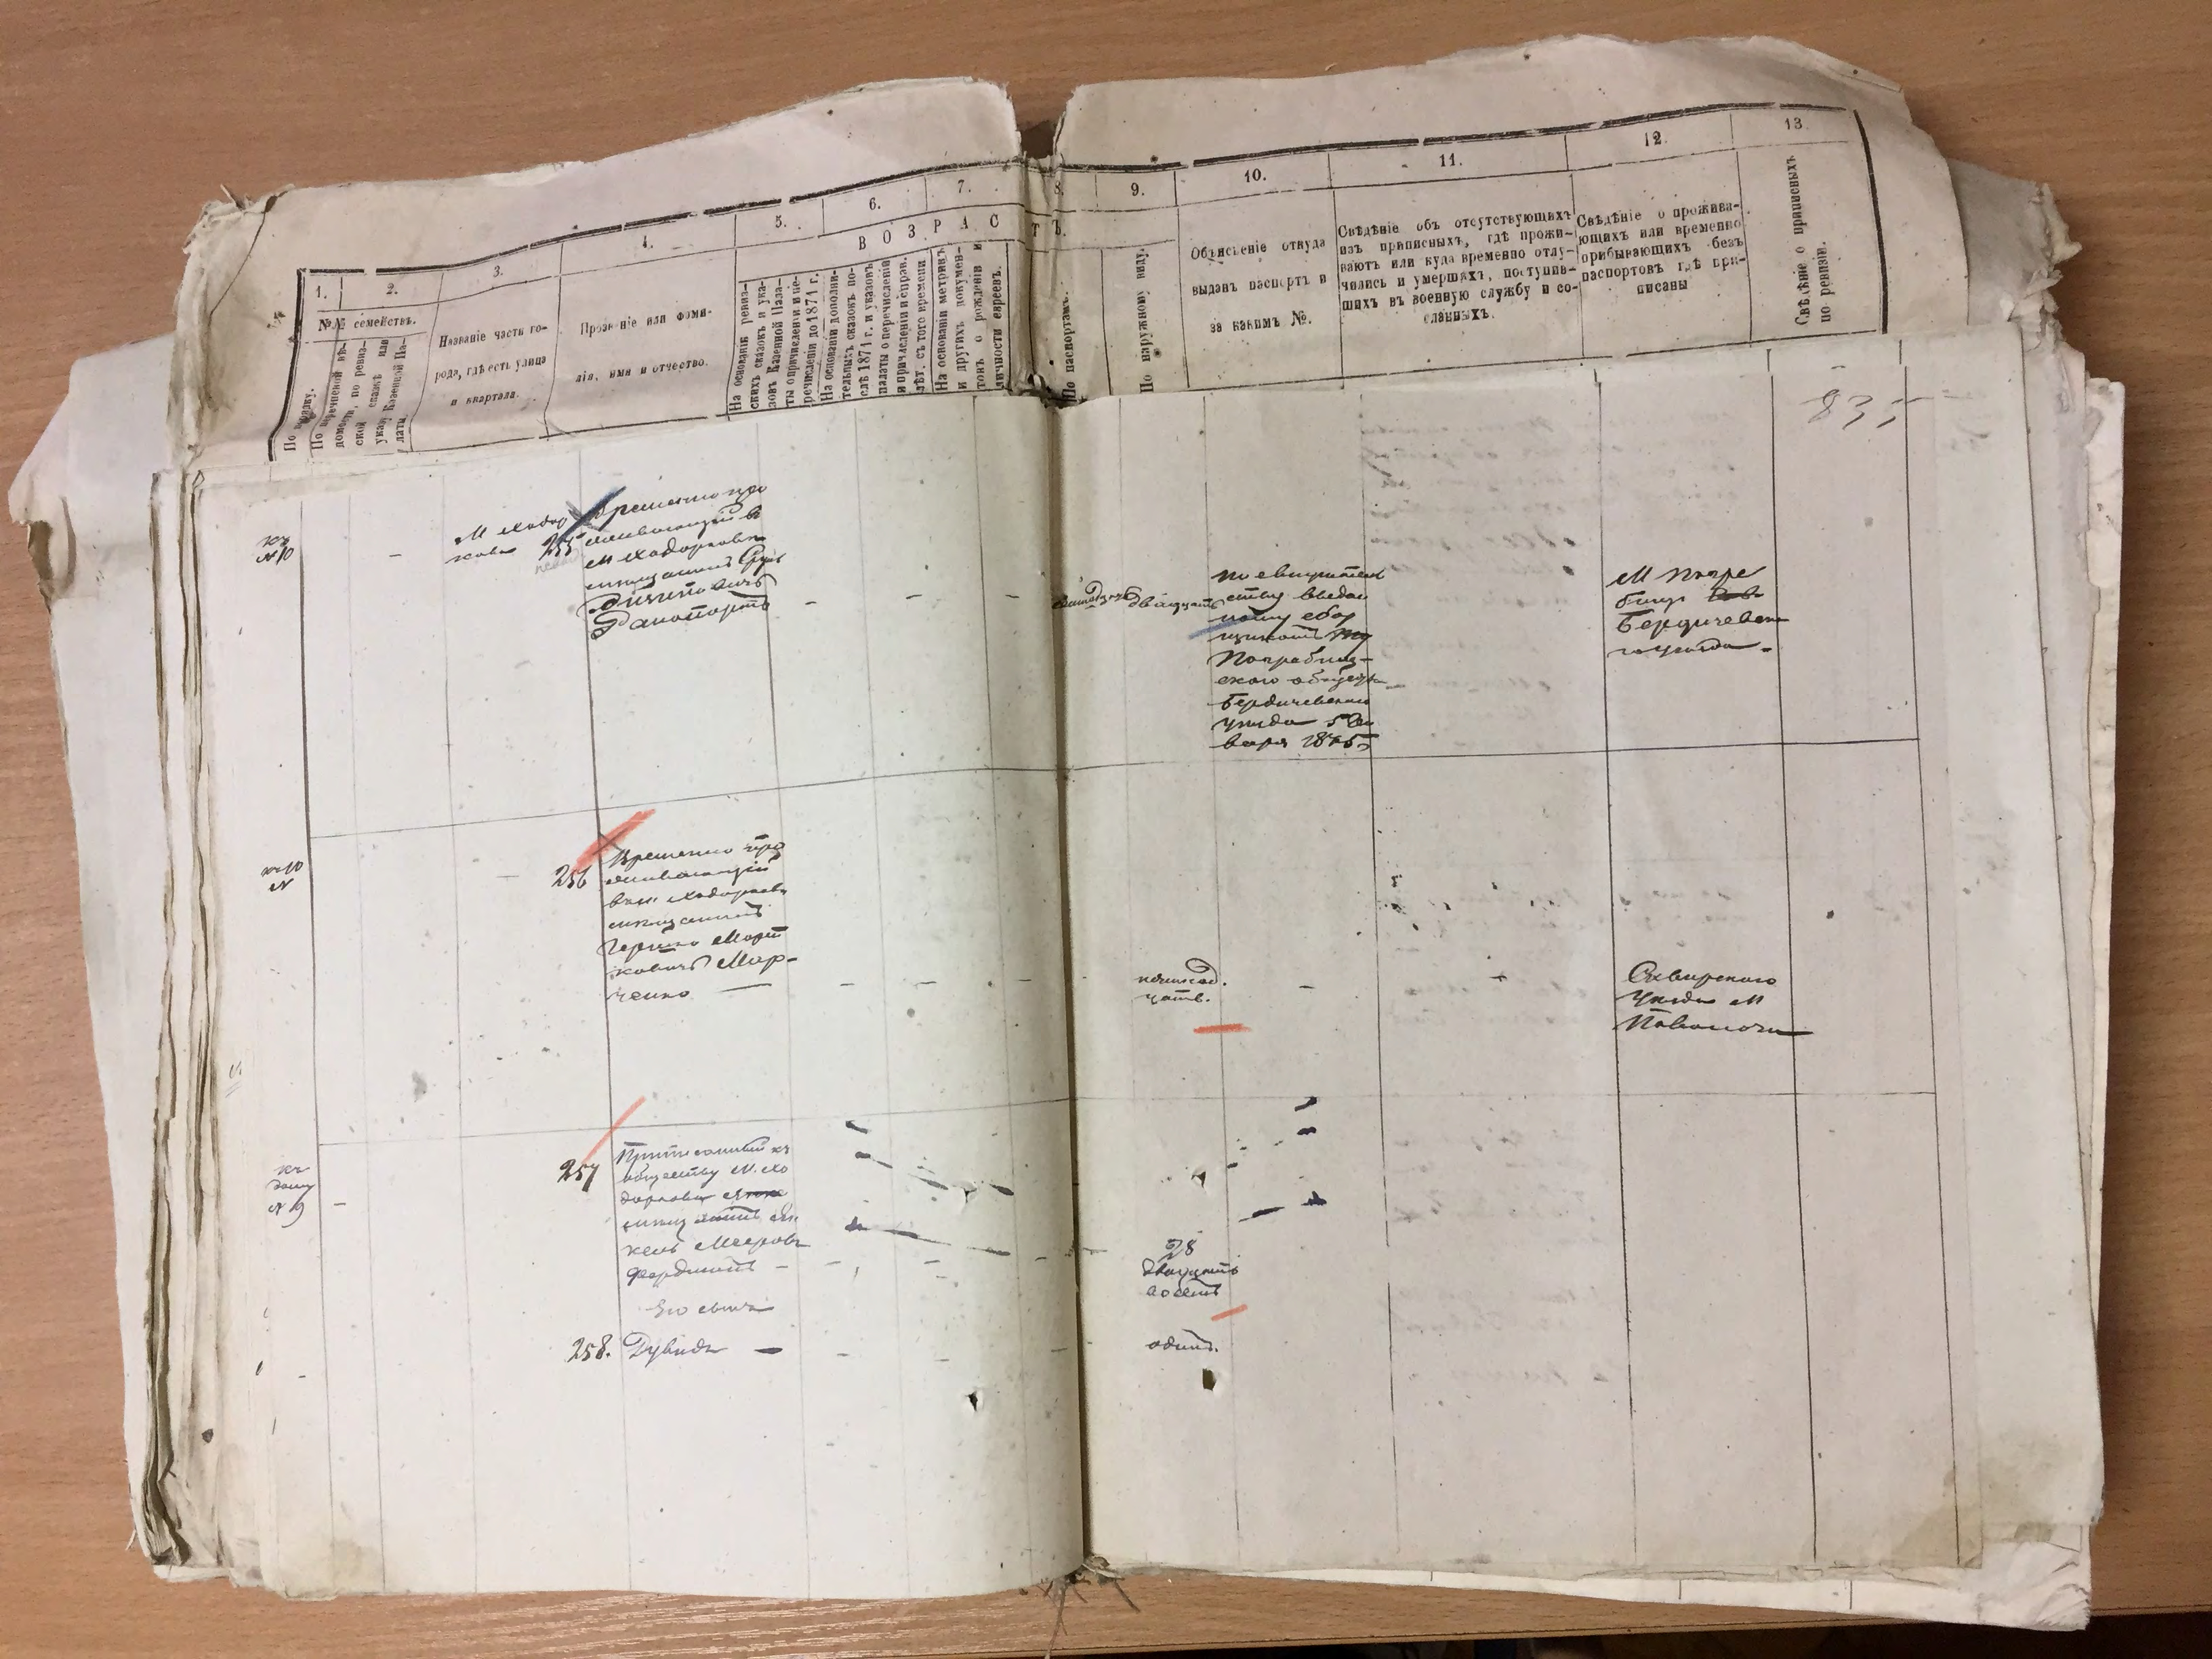 1.
2.
3.
4.
5.
6.
7.
8.
9.
10.
11.
12.
13.
№№ семействъ.
По порядку.
По
домости, по ревиз-
ской сказкѣ или
указ. Казенной Па-
латы.
Названіе части го-
рода, гдѣ есть улица
и квартала.
Прозваніе или фами-
лія, имя и отчество.
ВОЗРАСТЪ.
На основаніи ревиз-
скихъ сказокъ и ука-
зовъ Казенной Пала-
ты о причисленіи и пе-
речисленіи до 1874 г.
На основаніи дополни-
тельныхъ сказокъ по-
слѣ 1874 г. и указовъ
палаты о перечисленіи
и причисленіи и справ.
лѣт. съ того времени
На основаніи метрикъ
и другихъ докумен-
товъ о рожденіи и
личности евреевъ.
По паспортамъ.
По наружному виду.
Объясненіе откуда
выданъ паспортъ и
за какимъ №.
Свѣдѣніе объ отсутствующихъ
изъ приписныхъ, гдѣ прожи-
ваютъ или куда временно отлу-
чились и умершихъ, поступив-
шихъ въ военную службу и со-
сланныхъ.
Свѣдѣніе о прожива-
ющихъ или временно
прибывающихъ безъ
паспортовъ гдѣ при-
писаны
Свѣдѣніе о приписныхъ
по ревизіи.
835
къ
№ 10
М Ходор
кова
255
Временно про
живающій в
м Ходорковѣ
мѣщанинъ
Рапопортъ
двадцать
по свидѣтель
ству выдан
ному сбор
щикомъ
Погребищ-
скаго общест
Бердичевска
уѣзда 5 Ян
варя
М Погре
бищ
Бердичевск
го уѣзда
№ 10
256
Временно про
живающій
въ м Ходорковѣ
мѣщанинъ
Гершко Морт
ковичъ Мар-
ченко
пятнад.
цать.
Сквирского
уѣзда М
Паволочи
къ
дому
№ 19
257
Приписанный къ
обществу м. Хо
доркова
мѣщанинъ Ян
кель Мееровъ
Фердманъ
28
двадцать
восемь
Его сынъ
258. Дувидъ
одинъ.